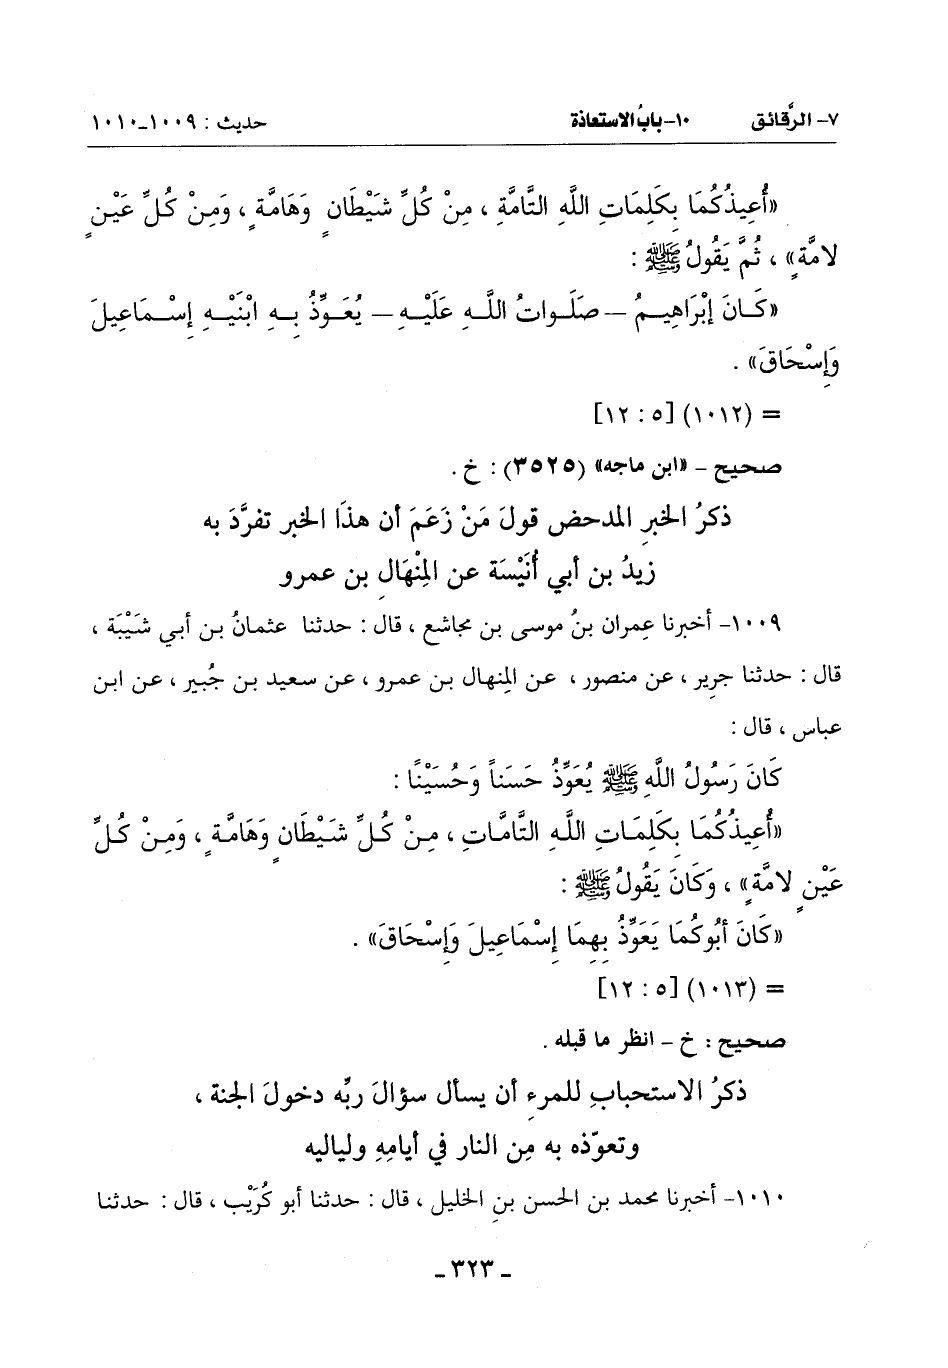 ٧- الرَّقائق ١٠-بابُ الاستعاذة حديث : ١٠٠٩-١٠١٠
«أُعِيذُكُمَا بِكَلِمَاتِ اللَّهِ التَّامَّةِ ، مِنْ كُلِّ شَيْطَانٍ وَهَامَّةٍ ، وَمِنْ كُلِّ عَيْنٍ
لامَّةٍ» ، ثُمَّ يَقُولُ ﷺ :
«كَـانَ إِبْرَاهِيـمُ – صَلَـواتُ اللَّـهِ عَلَيْـهِ – يُعَـوِّذُ بِـهِ ابْنَيْـهِ إِسْـمَاعِيلَ
وَإِسْحَاقَ» .
= (١٠١٢) [٥ : ١٢]
صحيح – «ابن ماجه» (٣٥٢٥) : خ .
ذكرُ الخبرِ المدحض قولَ مَنْ زَعَمَ أن هذَا الخبر تفرَّدَ به
زيدُ بن أبي أُنَيْسَة عن المِنْهَالِ بن عمرو
١٠٠٩- أخبرنا عِمران بنُ موسى بن مجاشع ، قال : حدثنا عثمانُ بن أبي شَيْبَة ،
قال : حدثنا جرِير ، عن منصور ، عن المِنهال بن عمرو ، عن سعيد بن جُبير ، عن ابن
عباس ، قال :
كَانَ رَسُولُ اللَّهِ ﷺ يُعَوِّذُ حَسَناً وَحُسَيْنًا :
«أُعِيذُكُمَا بِكَلِمَاتِ اللَّهِ التَّامَّاتِ ، مِنْ كُلِّ شَيْطَانٍ وَهَامَّةٍ ، وَمِنْ كُلِّ
عَيْنٍ لامَّةٍ» ، وَكَانَ يَقُولُ ﷺ :
«كَانَ أَبُوكُمَا يَعَوِّذُ بِهِمَا إِسْمَاعِيلَ وَإِسْحَاقَ» .
= (١٠١٣) [٥ : ١٢]
صحيح : خ – انظر ما قبله .
ذكرُ الاستحبابِ للمرءِ أن يسأل سؤالَ ربِّه دخولَ الجنة ،
وتعوّذه به مِن النار في أيامِهِ ولياليه
١٠١٠- أخبرنا محمد بن الحسن بنِ الخليل ، قال : حدثنا أبو كُرَيْب ، قال : حدثنا
- ٣٢٣ -